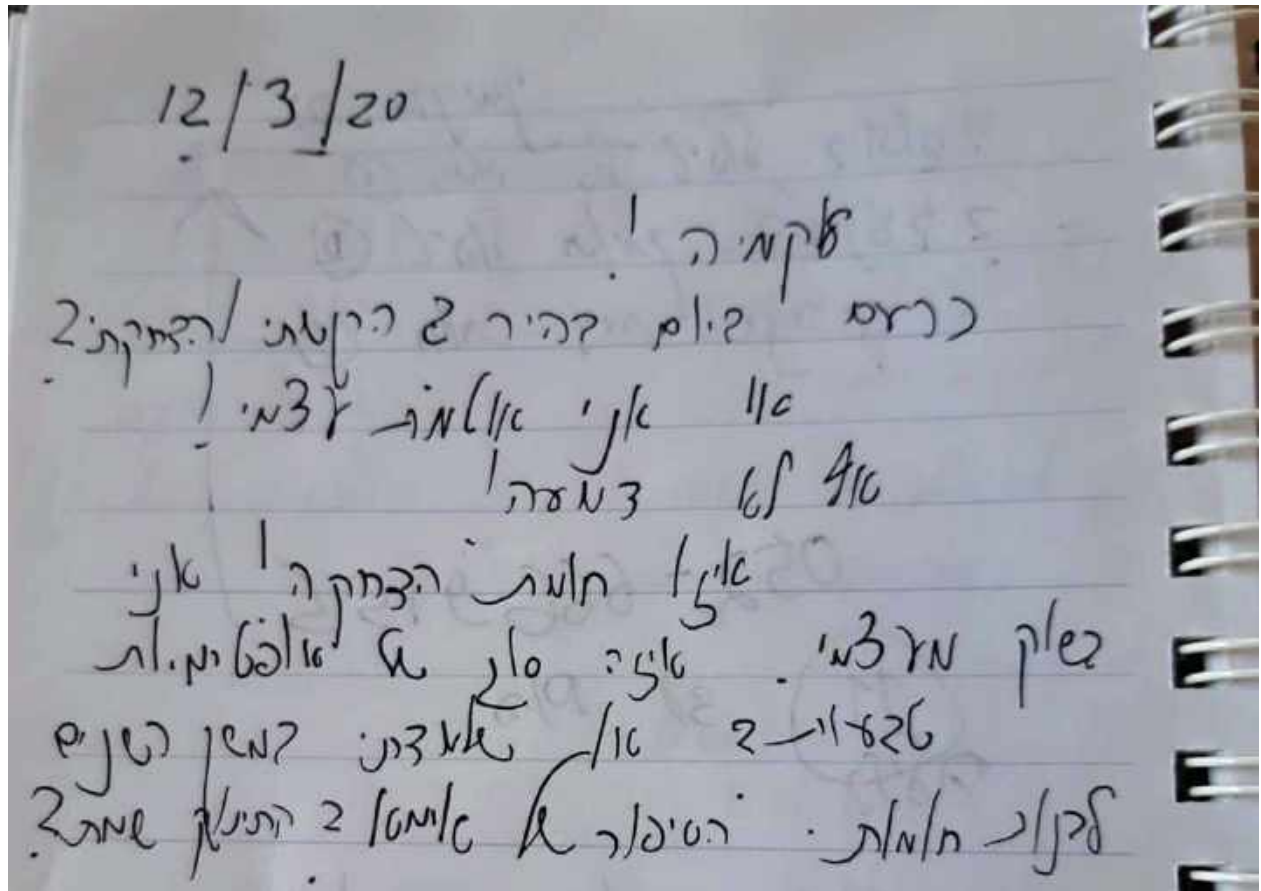 12/3/20
עקמיה!
כרעם ביום בהיר? הרגשתי / הדחקתי?
או אני אולמת עצמי!
אף לא דמעה!
איזו חומת הדחקה! אני
בשוק מעצמי. איזה סוג של אופטימיות
טבעית? או שלמדתי במשך השנים
לבנות חומות. הסיפור של אימא? התינוק שמת?